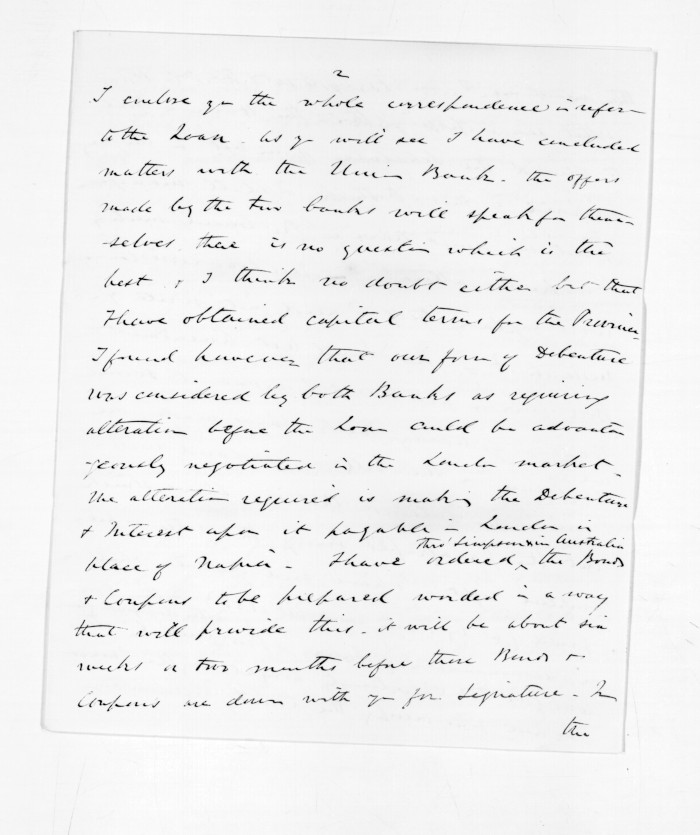 2
I enclose yo the whole correspondence in refer-
to the Loan. as yo will see I have concluded
matters with the Union Bank. the offers
made by the two banks will speak for them
-selves. there is no question which is the
best & I think no doubt either but that
I have obtained capital terms for the Province
I found however that our form of Debenture
was considered by both Banks as requiring
alteration before the Loan could be advanta
geously negotiated in the London market.
the alteration required is making the Debenture
& Interest upon it payable in London in
place of Napier - I have ordered the Bonds
thro' Simpson in Australia
& Coupons to be prepared worded in a way
that will provide this. it will be about six
weeks or two months before these Bonds &
Coupons are down with yo for Signature. In
the